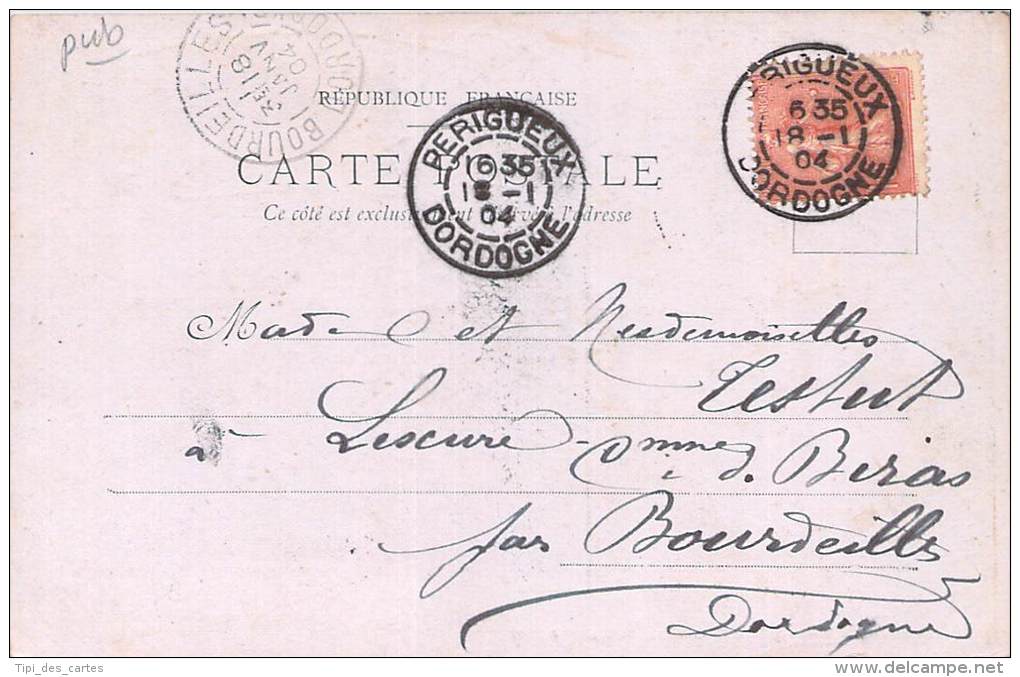 pub
BOURDEILLES DORDOGNE
3E / 18
JANV
04
RÉPUBLIQUE FRANÇAISE
CARTE POSTALE
Ce côté est exclusivement réservé à l'adresse
PERIGUEUX
6 35
18 -1
04
DORDOGNE
PERIGUEUX
6 35
18 -1
04
DORDOGNE
Made et Mesdemoiselles
Testut
à Lescure - Cmme d. Biras
par Bourdeilles
Dordogne
Tipi_des_cartes
www.delcampe.net